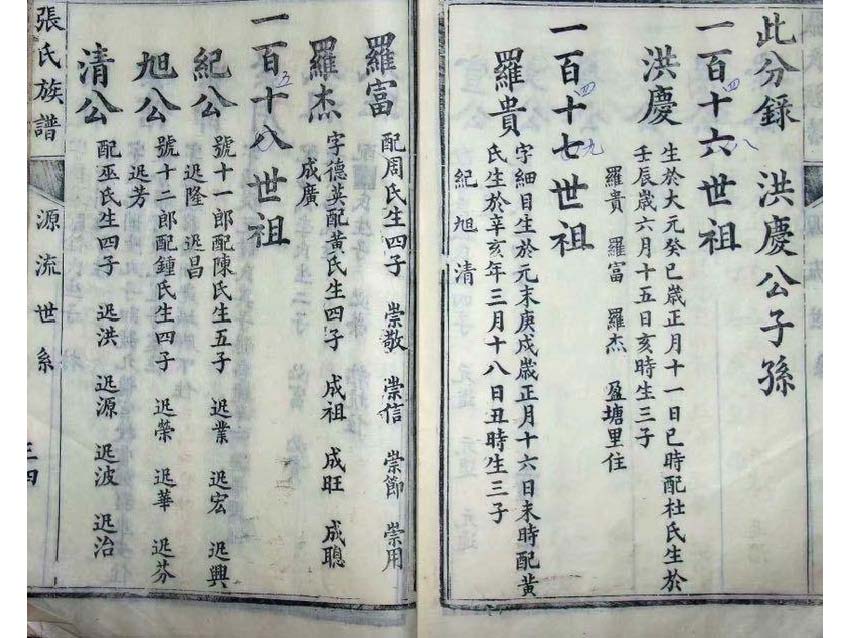 此分錄 洪慶公子孫
一百十六世祖
四 八
洪慶 生於大元癸巳歲正月十一日巳時配杜氏生於
壬辰歲六月十五日亥時生三子
羅貴 羅富 羅杰 盈塘里住
一百十七世祖
四 九
羅貴 字細目生於元末庚戌歲正月十六日未時配黃
氏生於辛亥年三月十八日丑時生三子
紀 旭 清
羅富 配周氏生四子 崇敬 崇信 崇節 崇用
羅杰 字德英配黃氏生四子 成祖 成旺 成聰
成廣
一百十八世祖
五
紀公 號十一郎配陳氏生五子 迟業 迟宏 迟興
迟隆 迟昌
旭公 號十二郎配鍾氏生四子 迟榮 迟華 迟芬
迟芳
清公 配巫氏生四子 迟洪 迟源 迟波 迟治
張氏族譜 源流世系 三四